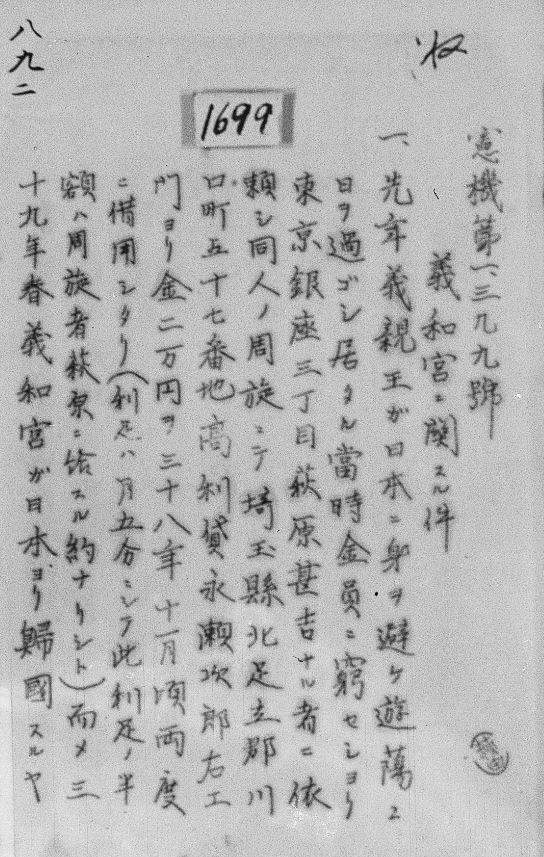 1699
憲機第一、三九九號
義和宮ニ関スル件
一、先年義親王ガ日本ニ身ヲ避ケ遊蕩ニ
日ヲ過ゴシ居タル當時金員ニ窮セシヨリ
東京銀座三丁目萩原甚吉ナル者ニ依
頼シ同人ノ周旋ニテ埼玉縣北足立郡川
口町五十七番地高利貸永瀬次郎右エ
門ヨリ金二万円ヲ三十八年十一月頃両度
ニ借用シタリ(利足ハ月五分ニシテ此利足ノ半
額ハ周旋者萩原ニ給スル約ナリシト)而メ三
十九年春義和宮ガ日本ヨリ歸國スルヤ
八九二